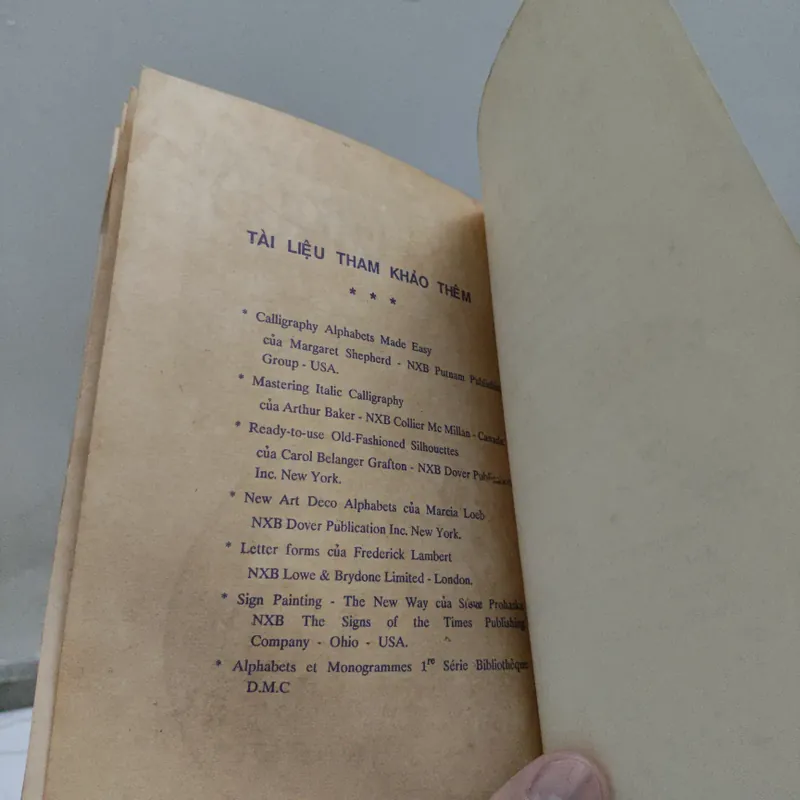 TÀI LIỆU THAM KHẢO THÊM
* * *
* Calligraphy Alphabets Made Easy
của Margaret Shepherd - NXB Putnam
Group - USA.
* Mastering Italic Calligraphy
của Arthur Baker - NXB Collier Mc Millan - Canada.
* Ready-to-use Old-Fashioned Silhouettes
của Carol Belanger Grafton - NXB Dover
Inc. New York.
* New Art Deco Alphabets của Marcia Loeb
NXB Dover Publication Inc. New York.
* Letter forms của Frederick Lambert
NXB Lowe & Brydone Limited - London.
* Sign Painting - The New Way của
NXB The Signs of the Times Publishing
Company - Ohio - USA.
* Alphabets et Monogrammes 1re Série Bibliothèque
D.M.C